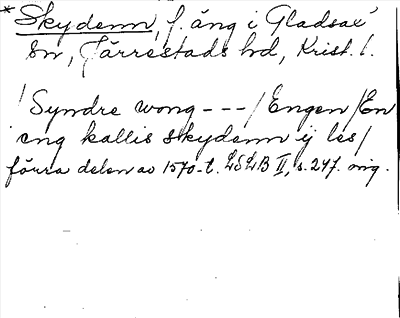 *Skydenn, f. äng i Gladsax'
sn, Järrestads hd, Krist. l.
/Syndre wong --- / Engen / En
eng kallis skydenn ij les /
förra delen av 1570-t. LSLB II, s. 247. mg.